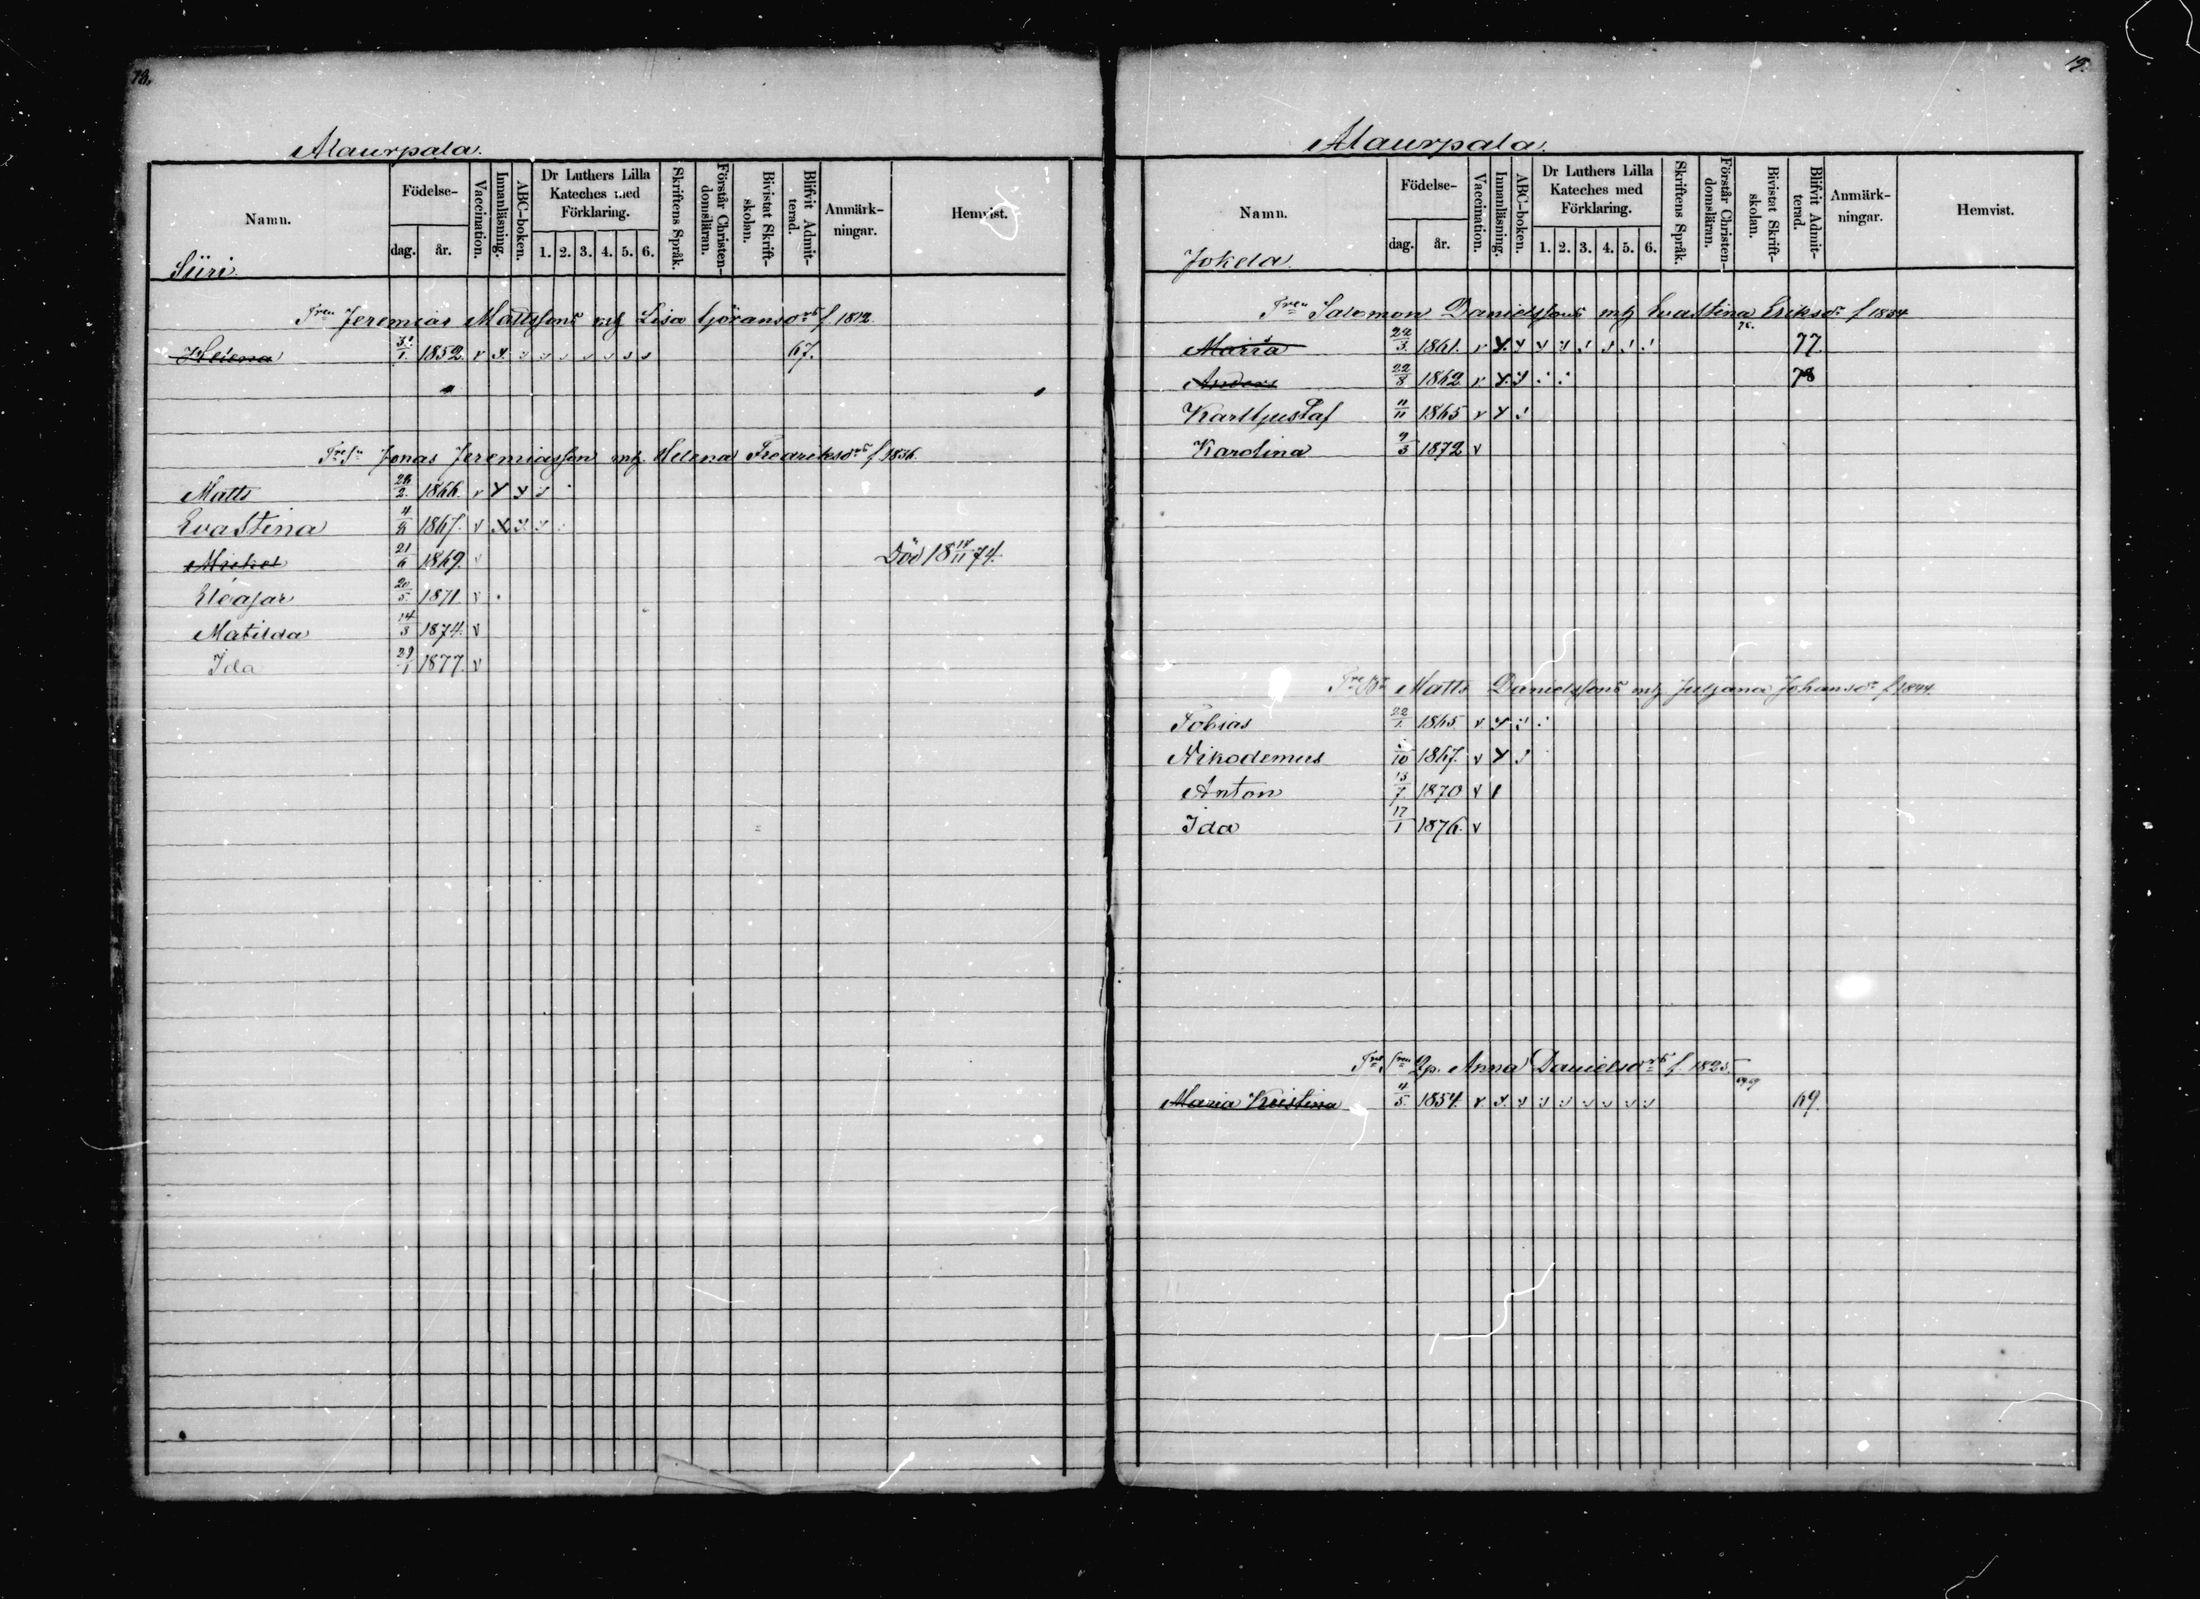 19.
Alaurpala.
Alaurpala.
Namn. Födelse- dag. år. Vaccination. Innanläsning. ABC-boken. Dr Luthers Lilla Kateches med Förklaring. 1. 2. 3. 4. 5. 6. Skriftens Språk. Förstår Christendomsläran. Bivistat Skriftskolan. Blifvit Admitterad. Anmärkningar. Hemvist.
Siiri.
Jeremias Mattssons Lisa Göransdr f 1812.
Helena 1852. v 67.
Jonas Jeremiasson Helena Fredriksdr f 1836.
Matts 1866. v
Eva Stina 1867. v
Mickel 21/6 1869. Död 18 17/11 74.
Eleasar 20/5 1871. v
Matilda 14/3 1874. v
Ida 29/1 1877. v
Namn. Födelse- dag. år. Vaccination. Innanläsning. ABC-boken. Dr Luthers Lilla Kateches med Förklaring. 1. 2. 3. 4. 5. 6. Skriftens Språk. Förstår Christendomsläran. Bivistat Skriftskolan. Blifvit Admitterad. Anmärkningar. Hemvist.
Jokela.
Salomon Danielssons Eva Stina Eriksdr f 1834
Maria 22/3 1861. v 77.
Anders 22/8 1862 v 78
Karl Gustaf 11/11 1865 v
Karolina 9/3 1872 v
Matts Danielssons Johansdr f 1844.
Tobias 22/1 1865 v
Nikodemus 1867. v
Anton 13/7 1870 v
Ida 17/1 1876. v
Anna Danielsdr f 1825.
Maria Kristina 4/5 1854. v 69.